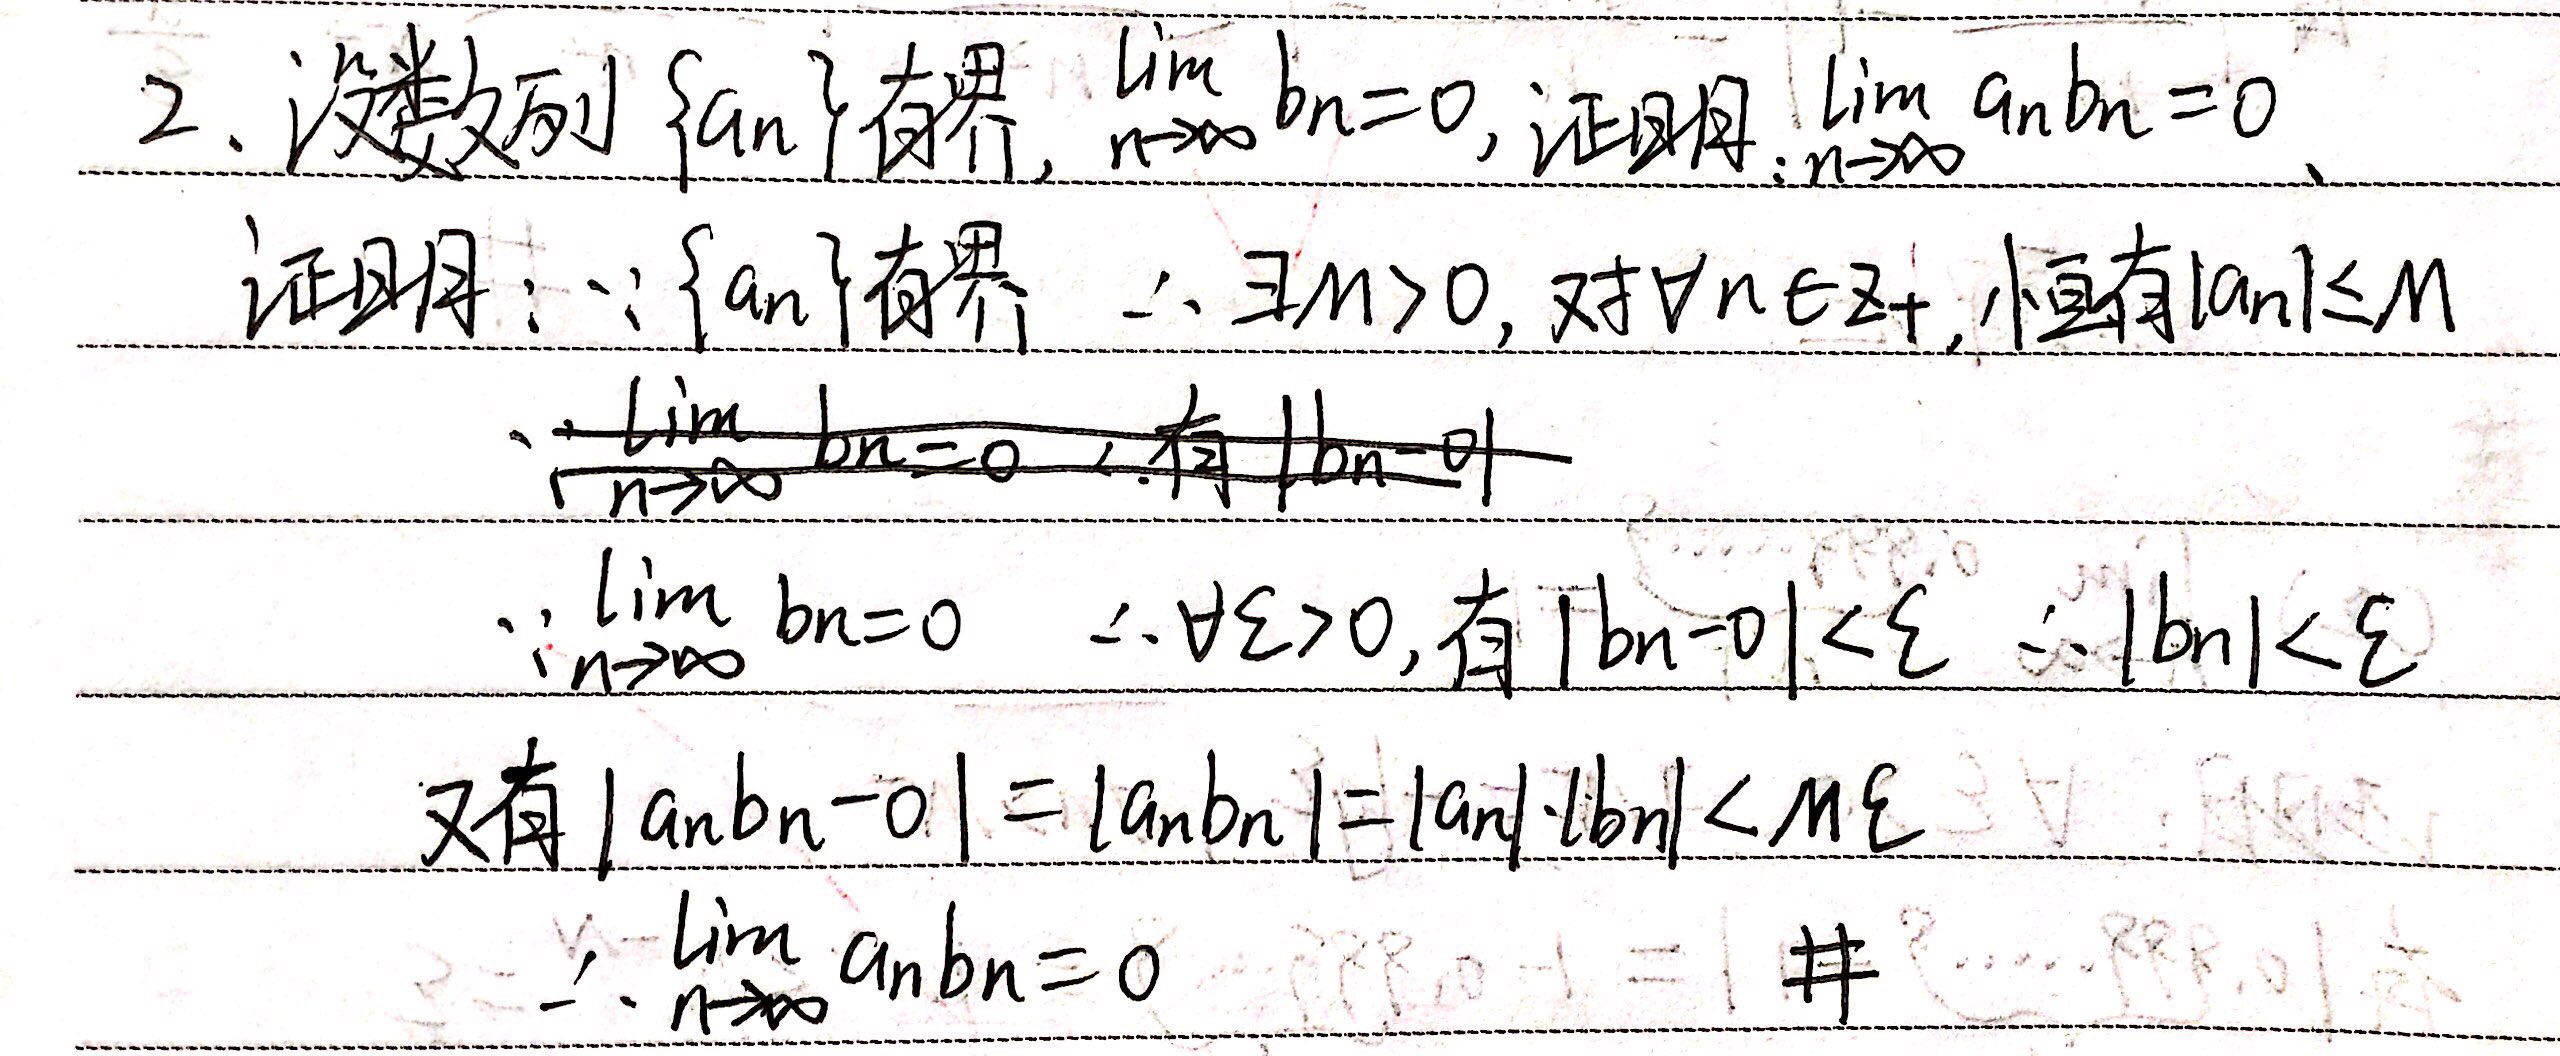 2、设数列{an}有界, lim n→∞ bn=0, 证明: lim n→∞ anbn=0、
证明: ∵{an}有界 ∴∃M>0, 对∀n∈Z+, 恒有|an|≤M
∵lim n→∞ bn=0 ∴有|bn-0|
∵lim n→∞ bn=0 ∴∀ε>0, 有|bn-0|<ε ∴|bn|<ε
又有|anbn-0|=|anbn|=|an|·|bn|<Mε
∴lim n→∞ anbn=0 #